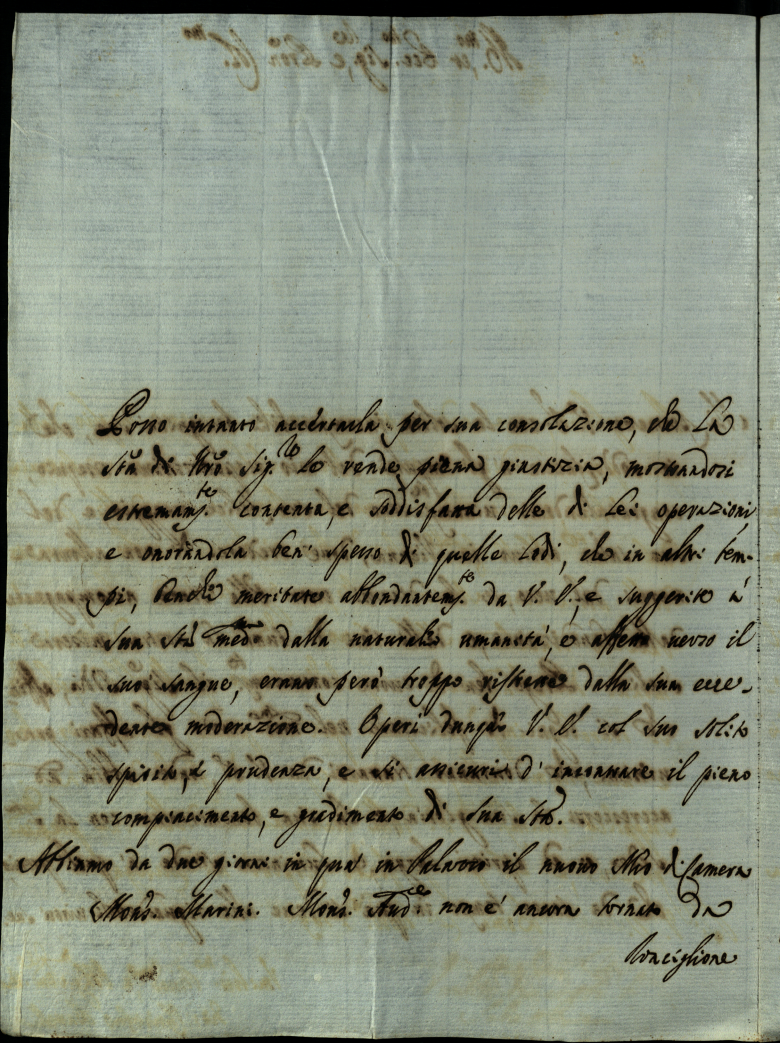 Posso intanto accertarla per sua consolazione, che La
Stà di Nrõ Sig.re le rende piena giustizia, mostrandosi
estremam.te contenta, e soddisfatta delle di Lei operazioni,
e onorandola ben' spesso di quelle Lodi, che in altri tem-
pi, benche meritate abbondantem.te da V. E., e suggerite à
sua Stà med.ma dalla naturale umanità, e affetto verso il
suo sangue, erano però troppo ristrette dalla sua ecce-
dente moderazione. Operi dunq.e V. E. col suo solito
spirito, e prudenza, e si assicuri d'incontrare il pieno
compiacimento, e gradimento di Sua Stà.
Abbiamo da due giorni in quà in Palazzo il nuovo Mrõ di Camera
Mons.r Marini. Mons.r Aud.re non e' ancora tornato da
Ronciglione